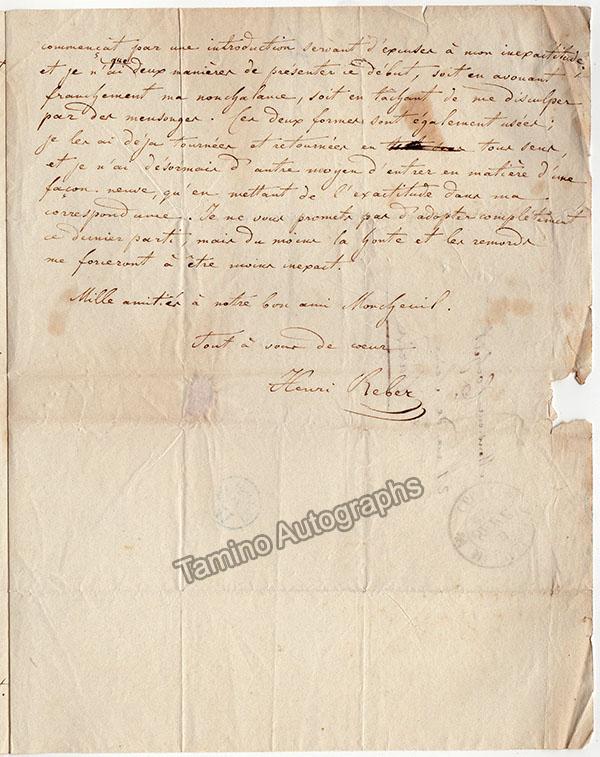 commençât par une introduction servant d'excuses à mon inexactitude,
et je n'ai que deux manières de présenter ce début, soit en avouant
franchement ma nonchalance, soit en tâchant de me disculper
par des mensonges. Ces deux formes sont également usées;
je les ai déjà tournées et retournées en tous sens,
et je n'ai désormais d'autre moyen d'entrer en matière d'une
façon neuve, qu'en mettant de l'exactitude dans ma
correspondance. Je ne vous promets pas d'adopter complètement
ce dernier parti, mais du moins la honte et les remords
me forceront à être moins inexact.
Mille amitiés à notre bon ami Moncheuil.
Tout à vous de cœur
Henri Reber
Tamino Autographs